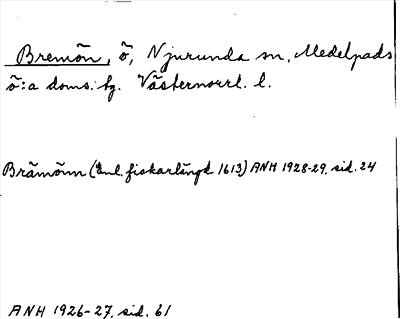 Bremön, ö, Njurunda sn, Medelpads
ö:a doms:tg. Västernorrl. l.
Brämönn (Enl. fiskarlängd 1613) ANH 1928-29, sid. 24
ANH 1926-27, sid. 61